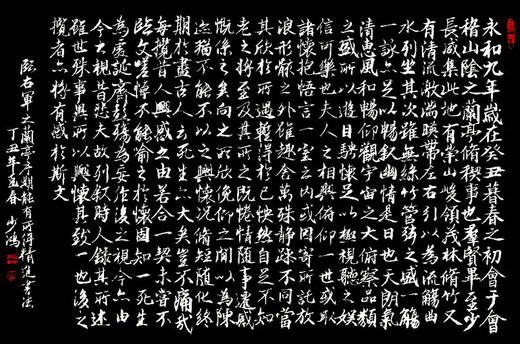 永和九年歲在癸丑暮春之初會于會
稽山陰之蘭亭脩稧事也羣賢畢至少
長咸集此地有崇山峻領茂林脩竹又
有清流激湍暎帶左右引以為流觴曲
水列坐其次雖無絲竹管弦之盛一觴
一詠亦足以暢敘幽情是日也天朗氣
清惠風和暢仰觀宇宙之大俯察品類
之盛所以遊目騁懷足以極視聽之娛
信可樂也夫人之相與俯仰一世或取
諸懷抱悟言一室之內或因寄所託放
浪形骸之外雖趣舍萬殊靜躁不同當
其欣於所遇蹔得於己怏然自足不知
老之將至及其所之既惓情隨事遷感
慨係之矣向之所欣俛仰之閒以為陳
迹猶不能不以之興懷況脩短隨化終
期於盡古人云死生亦大矣豈不痛哉
每攬昔人興感之由若合一契未嘗不
臨文嗟悼不能喻之於懷固知一死生
為虛誕齊彭殤為妄作後之視今亦由
今之視昔悲夫故列敘時人錄其所述
雖世殊事異所以興懷其致一也後之
攬者亦將有感於斯文
臨右軍之蘭亭序期能有所得精進書法
丁丑年孟春 少鴻